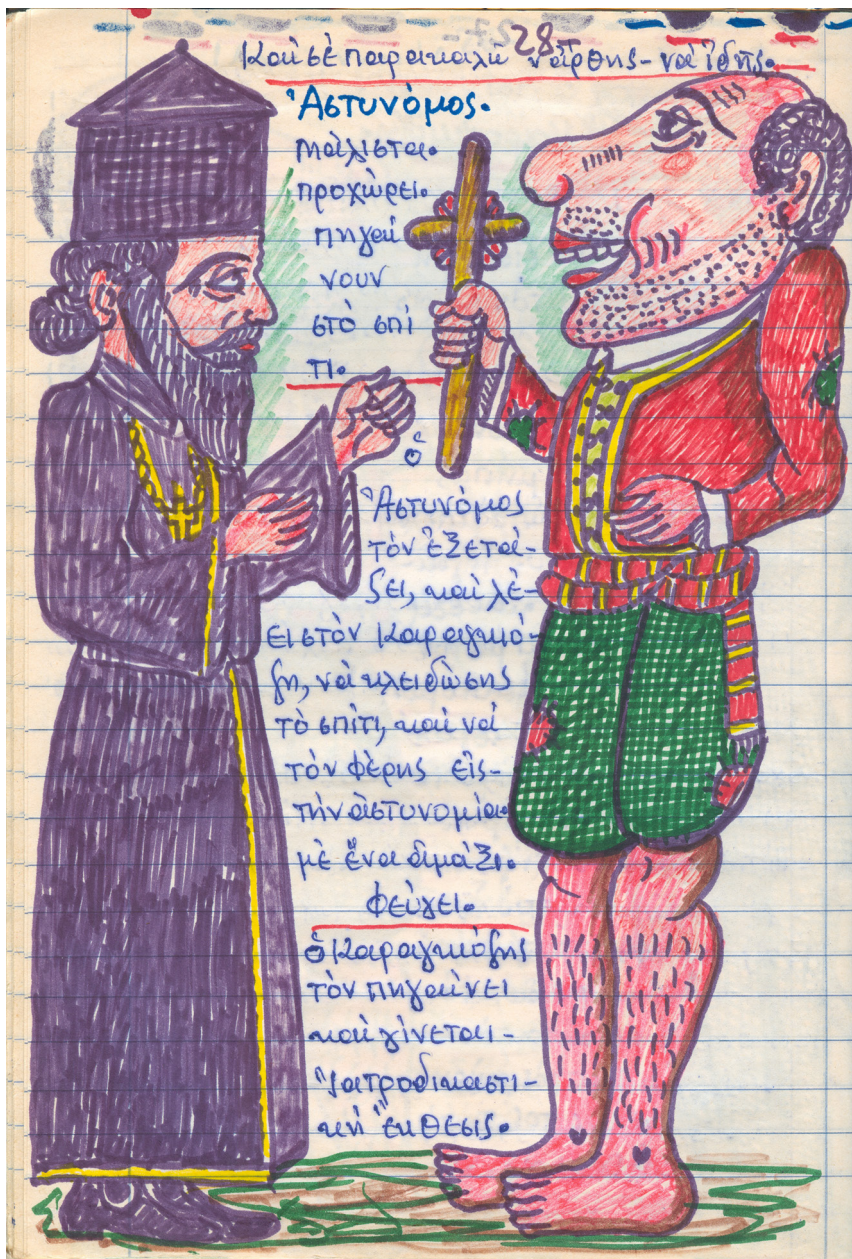 28
Καὶ σὲ παρακαλῶ νἄρθης - νὰ ἰδῆς.
Ἀστυνόμος.
μάλιστα.
προχώρει.
πηγαί
νουν
στὸ σπί
τι.
ὁ
Ἀστυνόμος
τὸν ἐξετά-
ζει, καὶ λέ-
ει στὸν Καραγκιό-
ζη, νὰ κλειδώσης
τὸ σπίτι, καὶ νὰ
τὸν φέρης εἰς-
τὴν ἀστυνομία
μὲ ἕνα ἁμάξι.
φεύγει.
ὁ Καραγκιόζης
τὸν πηγαίνει
καὶ γίνεται-
Ἰατροδικαστι-
κὴ Ἔκθεσις.